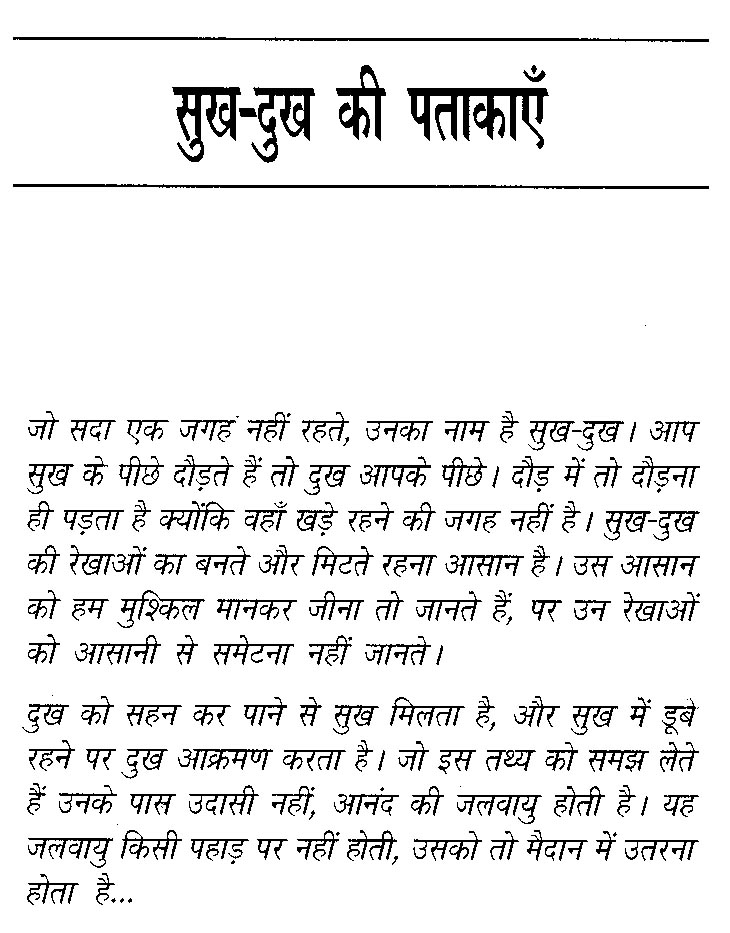 सुख-दुख की पताकाएँ
जो सदा एक जगह नहीं रहते, उनका नाम है सुख-दुख। आप
सुख के पीछे दौड़ते हैं तो दुख आपके पीछे। दौड़ में तो दौड़ना
ही पड़ता है क्योंकि वहाँ खड़े रहने की जगह नहीं है। सुख-दुख
की रेखाओं का बनते और मिटते रहना आसान है। उस आसान
को हम मुश्किल मानकर जीना तो जानते हैं, पर उन रेखाओं
को आसानी से समेटना नहीं जानते।
दुख को सहन कर पाने से सुख मिलता है, और सुख में डूबे
रहने पर दुख आक्रमण करता है। जो इस तथ्य को समझ लेते
हैं उनके पास उदासी नहीं, आनंद की जलवायु होती है। यह
जलवायु किसी पहाड़ पर नहीं होती, उसको तो मैदान में उतरना
होता है...